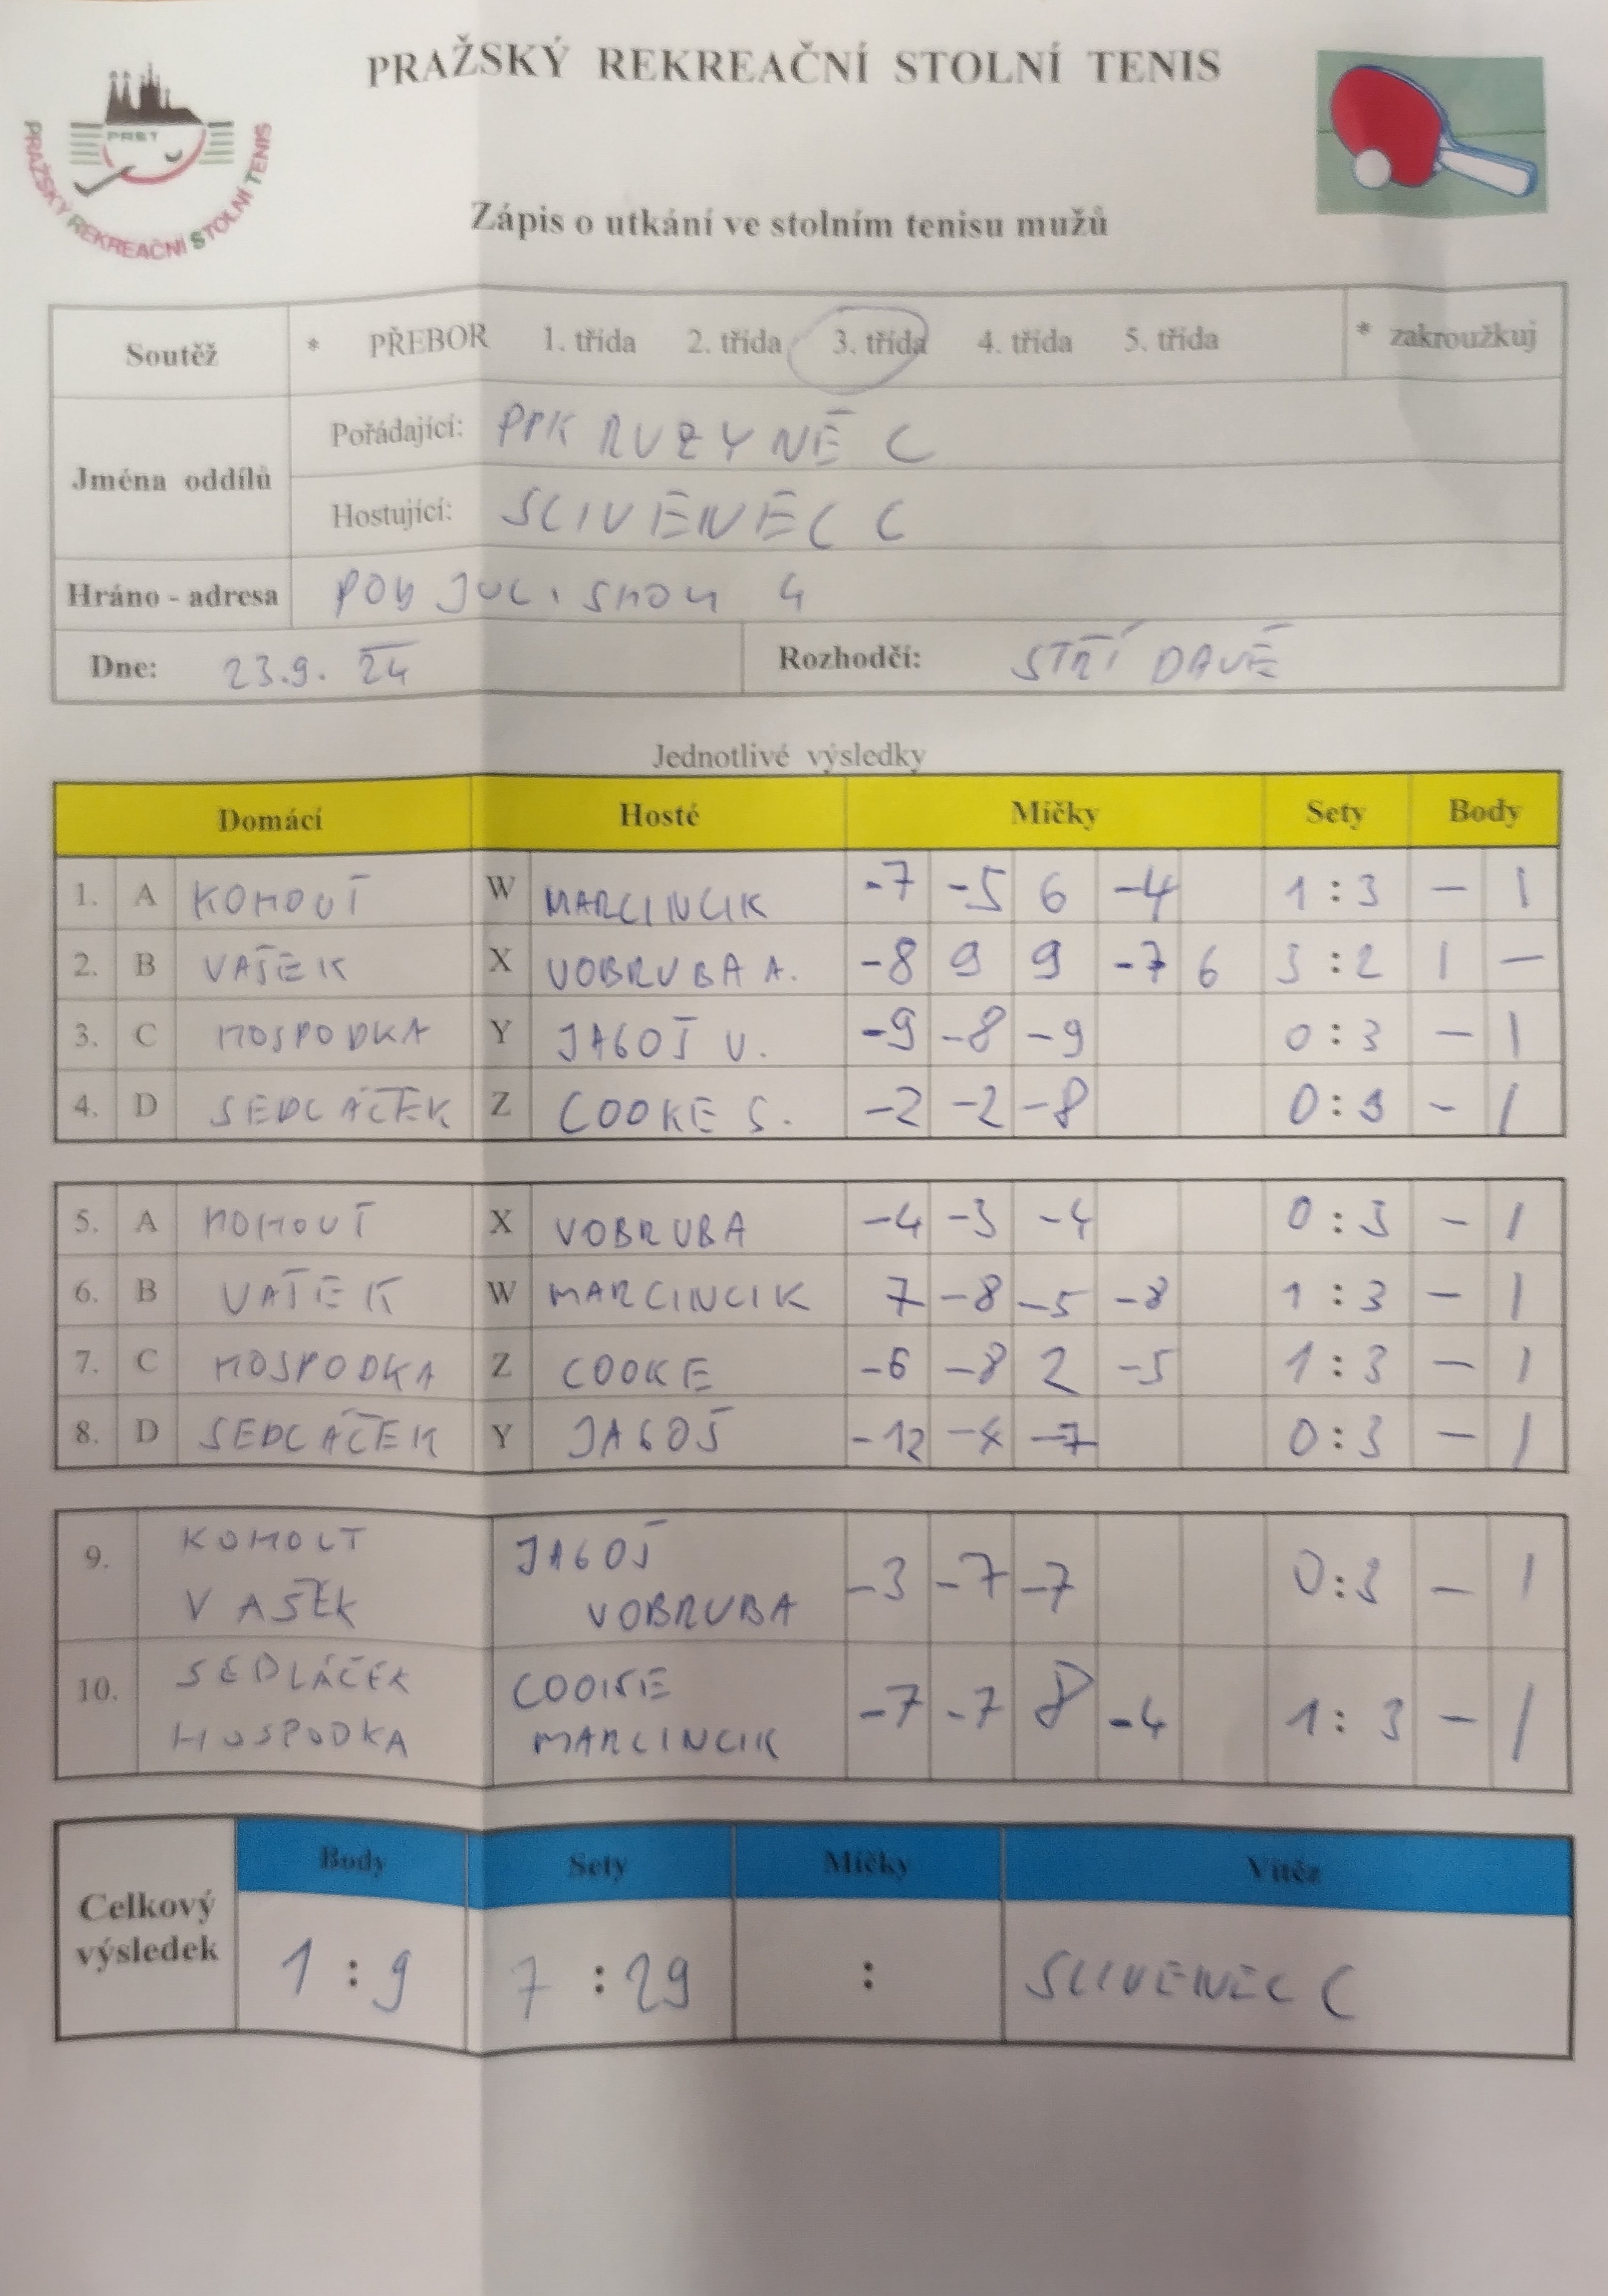 PRAŽSKÝ REKREAČNÍ STOLNÍ TENIS
PRST
PRAŽSKÝ REKREAČNÍ STOLNÍ TENIS
Zápis o utkání ve stolním tenisu mužů
Soutěž * PŘEBOR 1. třída 2. třída 3. třída 4. třída 5. třída * zakroužkuj
Jména oddílů
Pořádající: PPK RUZYNĚ C
Hostující: SLIVENEC C
Hráno - adresa POD JULISKOU 4
Dne: 23.9. 24 Rozhodčí: STŘÍDAVĚ
Jednotlivé výsledky
Domácí Hosté Míčky Sety Body
1. A KOHOUT W MARCINCIK -7 -5 6 -4 1 : 3 - 1
2. B VAŠEK X VOBRUBA A. -8 9 9 -7 6 3 : 2 1 -
3. C HOSPODKA Y JAGOŠ V. -9 -8 -9 0 : 3 - 1
4. D SEDLÁČEK Z COOKE S. -2 -2 -8 0 : 3 - 1
5. A KOHOUT X VOBRUBA -4 -3 -4 0 : 3 - 1
6. B VAŠEK W MARCINCIK 7 -8 -5 -8 1 : 3 - 1
7. C HOSPODKA Z COOKE -6 -8 2 -5 1 : 3 - 1
8. D SEDLÁČEK Y JAGOŠ -12 -7 0 : 3 - 1
9. KOHOUT JAGOŠ
VAŠEK VOBRUBA -3 -7 -7 0 : 3 - 1
10. SEDLÁČEK COOKE
HOSPODKA MARCINCIK -7 -7 8 -4 1 : 3 - 1
Celkový výsledek
Body Sety Míčky Vítěz
1 : 9 7 : 29 : SLIVENEC C